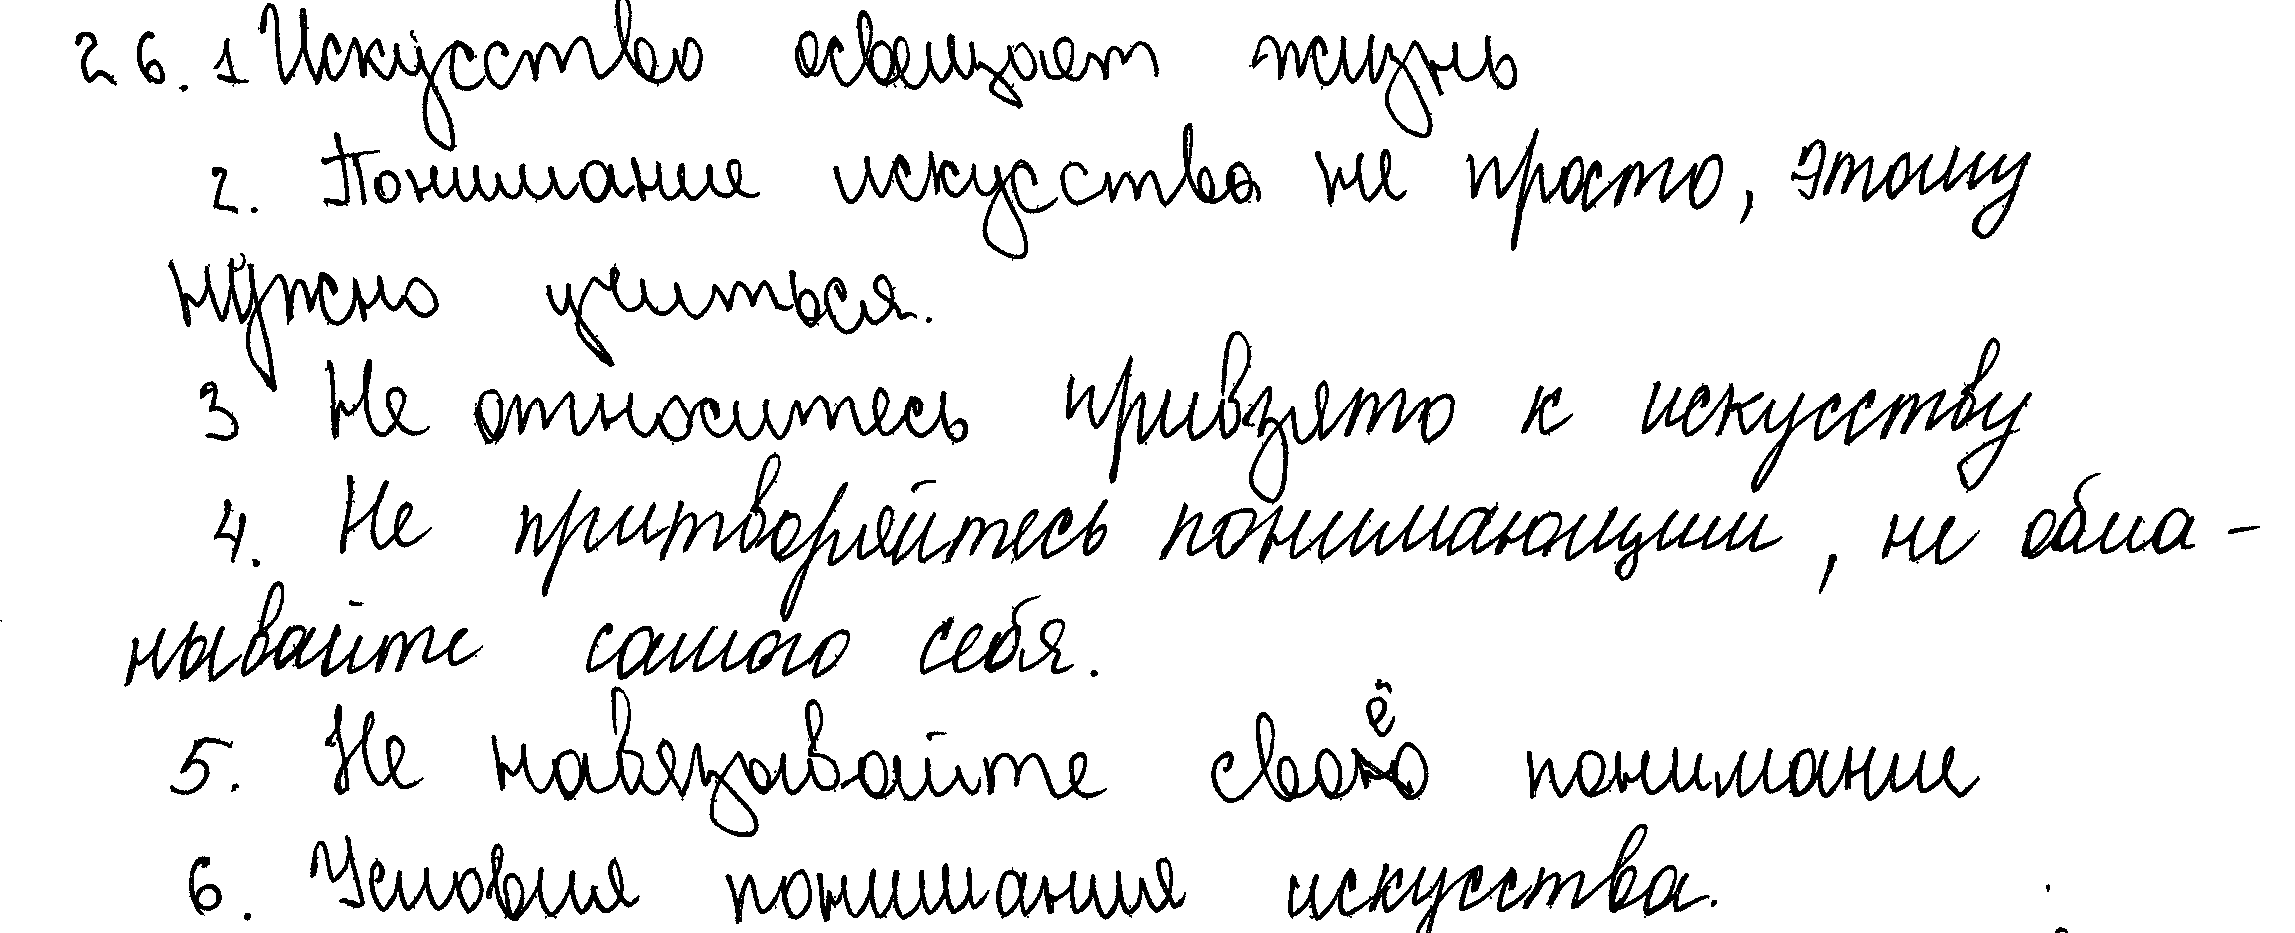 26. 1 Искусство освещает жизнь
2. Понимание искусства не просто, этому
нужно учиться.
3 Не относитесь привзято к искусству
4. Не притворяйтесь понимающим, не обма-
нывайте самого себя.
5. Не навязывайте своё понимание
6. Условия понимания искусства.